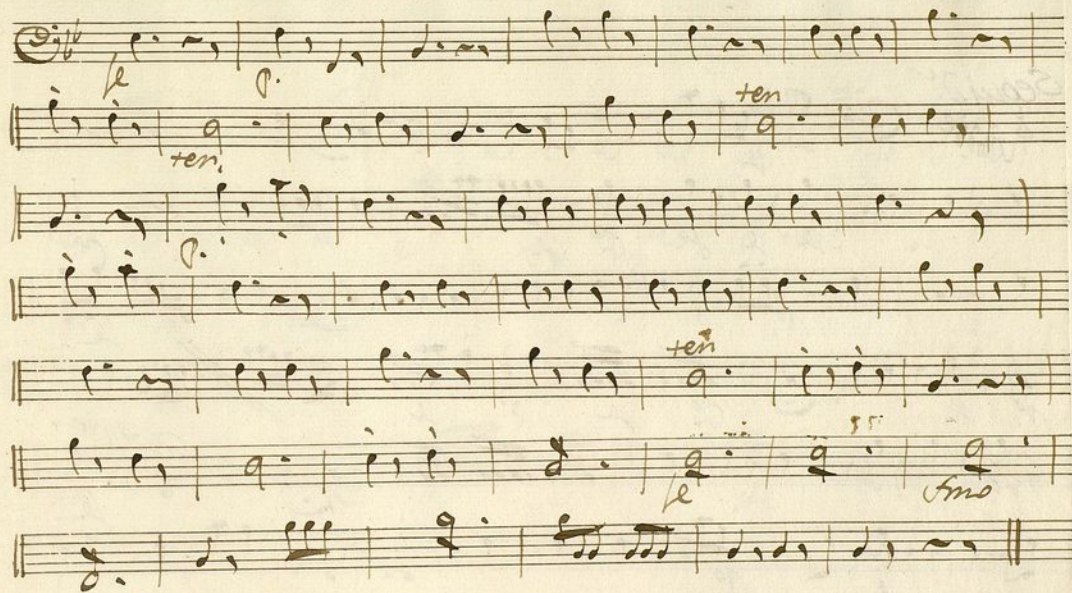 fe p.
ten. ten
p.
ten
fe fmo